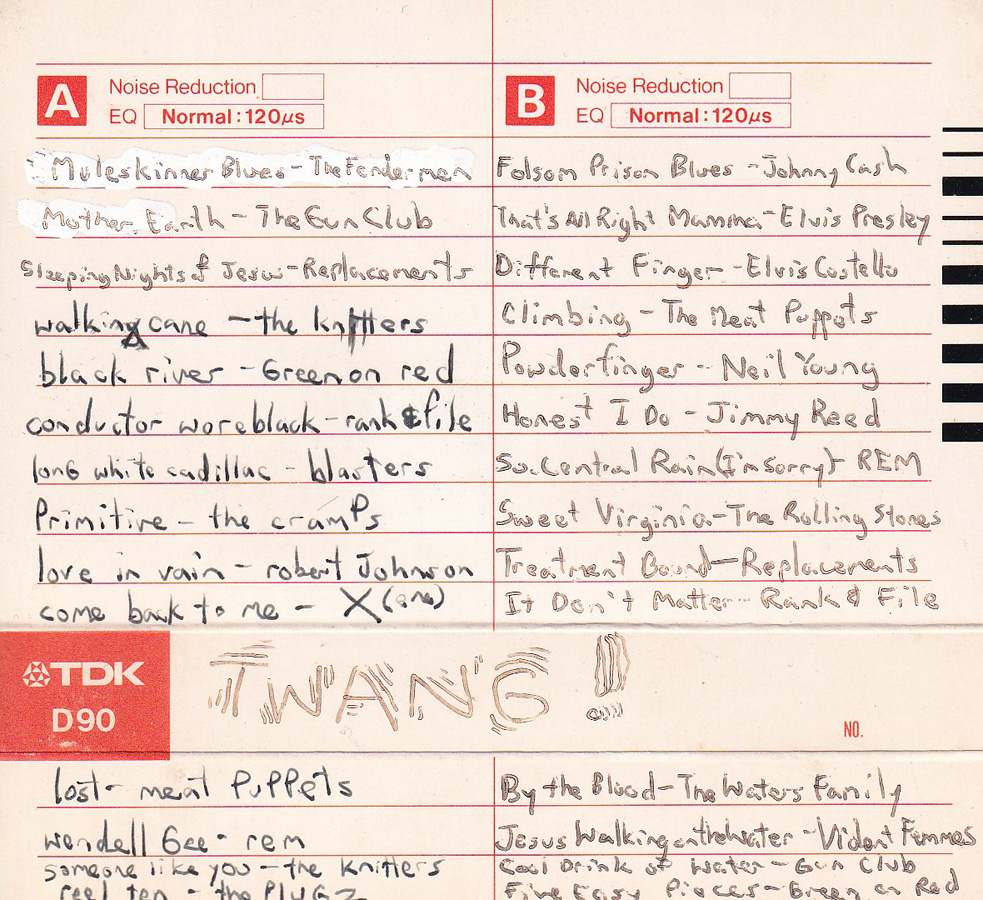 A Noise Reduction
EQ Normal:120µs
Muleskinner Blues - The Fendermen
Mother Earth - The Gun Club
Sleeping Nights of Jesus - Replacements
walking cane - the knitters
black river - Green on red
conductor wore black - rank & file
long white cadillac - blasters
Primitive - the cramps
love in vain - robert Johnson
come back to me - X (one)
B Noise Reduction
EQ Normal:120µs
Folsom Prison Blues - Johnny Cash
That's All Right Mamma - Elvis Presley
Different Finger - Elvis Costello
Climbing - The Meat Puppets
Powderfinger - Neil Young
Honest I Do - Jimmy Reed
So. Central Rain (I'm Sorry) - REM
Sweet Virginia - The Rolling Stones
Treatment Bound - Replacements
It Don't Matter - Rank & File
TDK
D90
TWANG!
NO.
lost - meat Puppets
wendell Gee - rem
someone like you - the knitters
reel ten - the Plugz
By the Blood - The Waters Family
Jesus Walking on the water - Violent Femmes
Cool Drink of Water - Gun Club
Five Easy Pieces - Green on Red